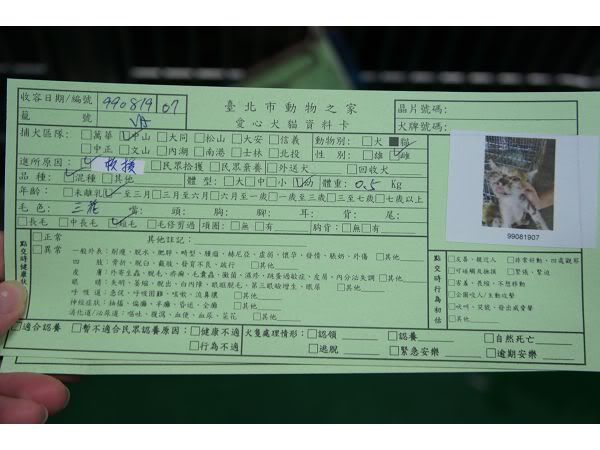 臺北市動物之家
愛心犬貓資料卡
收容日期/編號 990819 07
籠 號
晶片號碼:
犬牌號碼:
捕犬區隊: □萬華 □中山 □大同 □松山 □大安 □信義 動物別: □犬 ■貓
□中正 □文山 □內湖 □南港 □士林 □北投 性 別: □雄 □雌
進所原因: 救援 □民眾拾獲 □民眾棄養 □外送犬 □回收犬
品 種: □混種 □其他 體 型: □大□中□小□幼 體重: 0.5 Kg
年齡: □未離乳 □至三月□三月至六月□六月至一歲□一至三歲□三至七歲□七歲以上
毛 色: 三花 嘴: 頭: 胸: 腳: 耳: 背: 尾:
□長毛 □中長毛 □短毛 □毛修剪過 項圈: □無 □有 胸背: □無□有
99081907
點交時健康狀
□正常 其他註記:
□異常 一般外表: 削瘦、脫水、肥胖、畸型、腫瘤、赫尼亞、虛弱、懷孕、發情、脹奶、外傷 □其他
四 肢: 骨折、脫臼、截肢、發育不良、跛行 □其他
皮 膚: 外寄生蟲、脫毛、疥癬、毛囊蟲、黴菌、濕疹、跳蚤過敏症、皮屑、內分泌失調 □其他
眼 睛: 失明、萎縮、脫出、白內障、眼瞼脫毛、第三眼瞼增生、眼屎 □其他
呼 吸 道: 急促、呼吸困難、咳嗽、流鼻膿 □其他
神經症狀: 抽搐、偏癱、半癱、昏迷、全癱 □其他
消化道/泌尿道: 嘔吐、腹瀉、血便、血尿、尿花 □其他
點交時行為初估
□友善、親近人 □非常好動、四處觀察
□可碰觸及撫摸 □緊張、緊迫
□害羞、畏縮、不想移動
□企圖咬人/主動攻擊
□吠叫、哭號、發出威脅聲
□其他
□適合認養 □暫不適合民眾認養原因: □健康不適
□行為不適
犬隻處理情形: □認領 □認養 □自然死亡
□逃脫 □緊急安樂 □逾期安樂